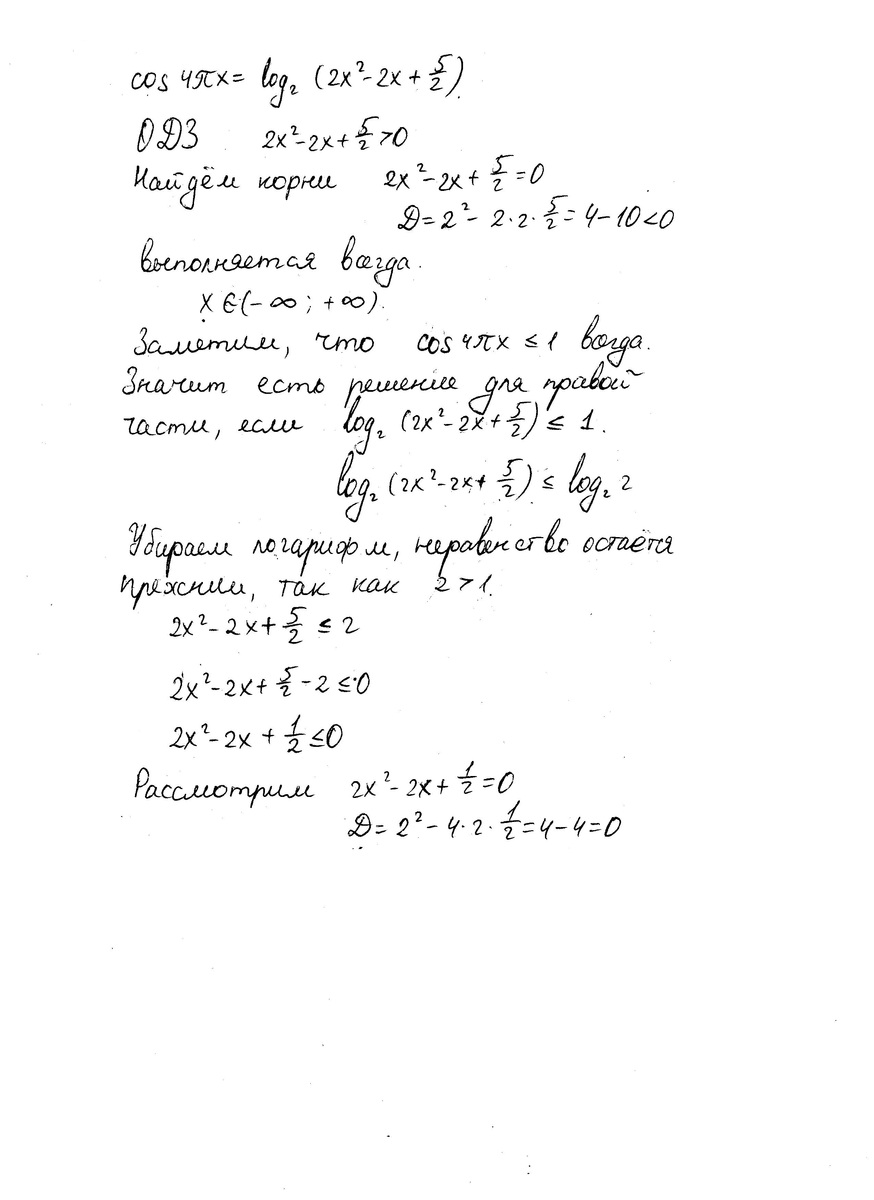 cos 4πx = log₂ (2x² - 2x + 5/2)
ОДЗ 2x² - 2x + 5/2 > 0
Найдём корни 2x² - 2x + 5/2 = 0
D = 2² - 2·2·5/2 = 4 - 10 < 0
выполняется всегда.
x ∈ (-∞; +∞).
Заметим, что cos 4πx ≤ 1 всегда.
Значит есть решение для правой
части, если log₂ (2x² - 2x + 5/2) ≤ 1.
log₂ (2x² - 2x + 5/2) ≤ log₂ 2
Убираем логарифм, неравенство остаётся
прежним, так как 2 > 1.
2x² - 2x + 5/2 ≤ 2
2x² - 2x + 5/2 - 2 ≤ 0
2x² - 2x + 1/2 ≤ 0
Рассмотрим 2x² - 2x + 1/2 = 0
D = 2² - 4·2·1/2 = 4 - 4 = 0